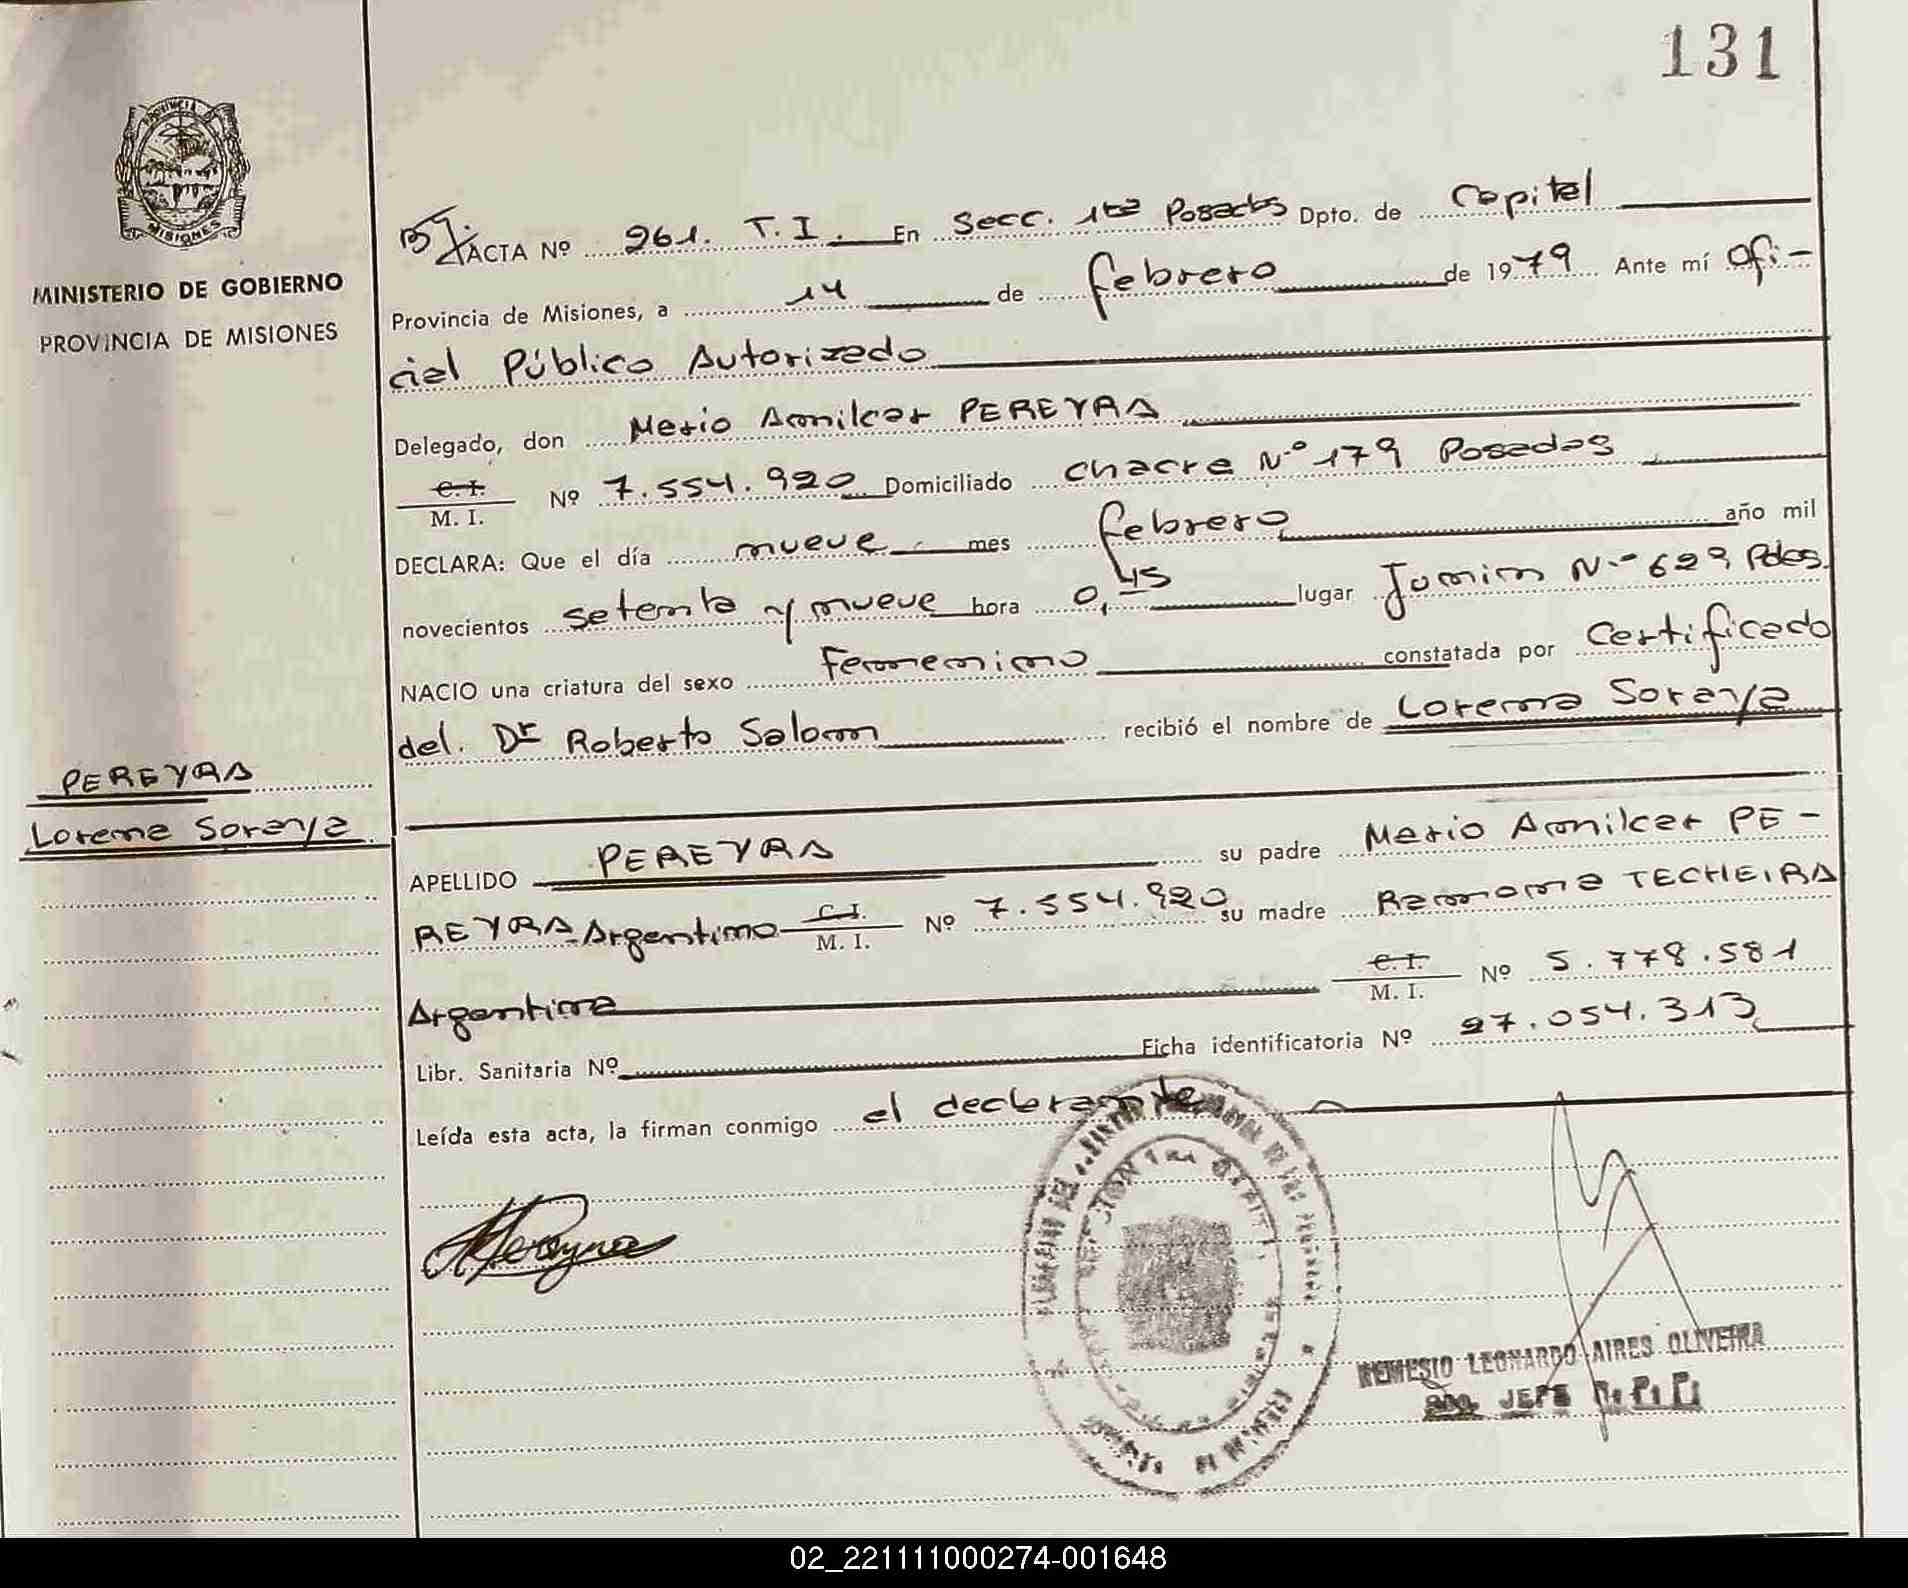 131
PROVINCIA
MISIONES
MINISTERIO DE GOBIERNO
PROVINCIA DE MISIONES
ACTA Nº 261. T.I. En Secc. 1ra Posadas Dpto. de Capital
Provincia de Misiones, a 14 de febrero de 1979 Ante mí Ofi-
cial Público Autorizado
Delegado, don Mario Amilcar PEREYRA
C. I.
M. I. Nº 7.554.920 Domiciliado Chacra Nº 179 Posadas
DECLARA: Que el día nueve mes febrero año mil
novecientos setenta y nueve hora 0,45 lugar Junin Nº 629 Pdas.
NACIO una criatura del sexo femenino constatada por Certificado
del. Dr Roberto Salom recibió el nombre de Lorena Soraya
PEREYRA
Lorena Soraya
APELLIDO PEREYRA su padre Mario Amilcar PE-
REYRA-Argentino C.I. M. I. Nº 7.554.920 su madre Ramona TECHEIRA
Argentina C. I. M. I. Nº 5.778.581
Libr. Sanitaria Nº Ficha identificatoria Nº 27.054.313
Leída esta acta, la firman conmigo el declarante
NEMESIO LEONARDO AIRES OLIVEIRA
JEFE
02_221111000274-001648